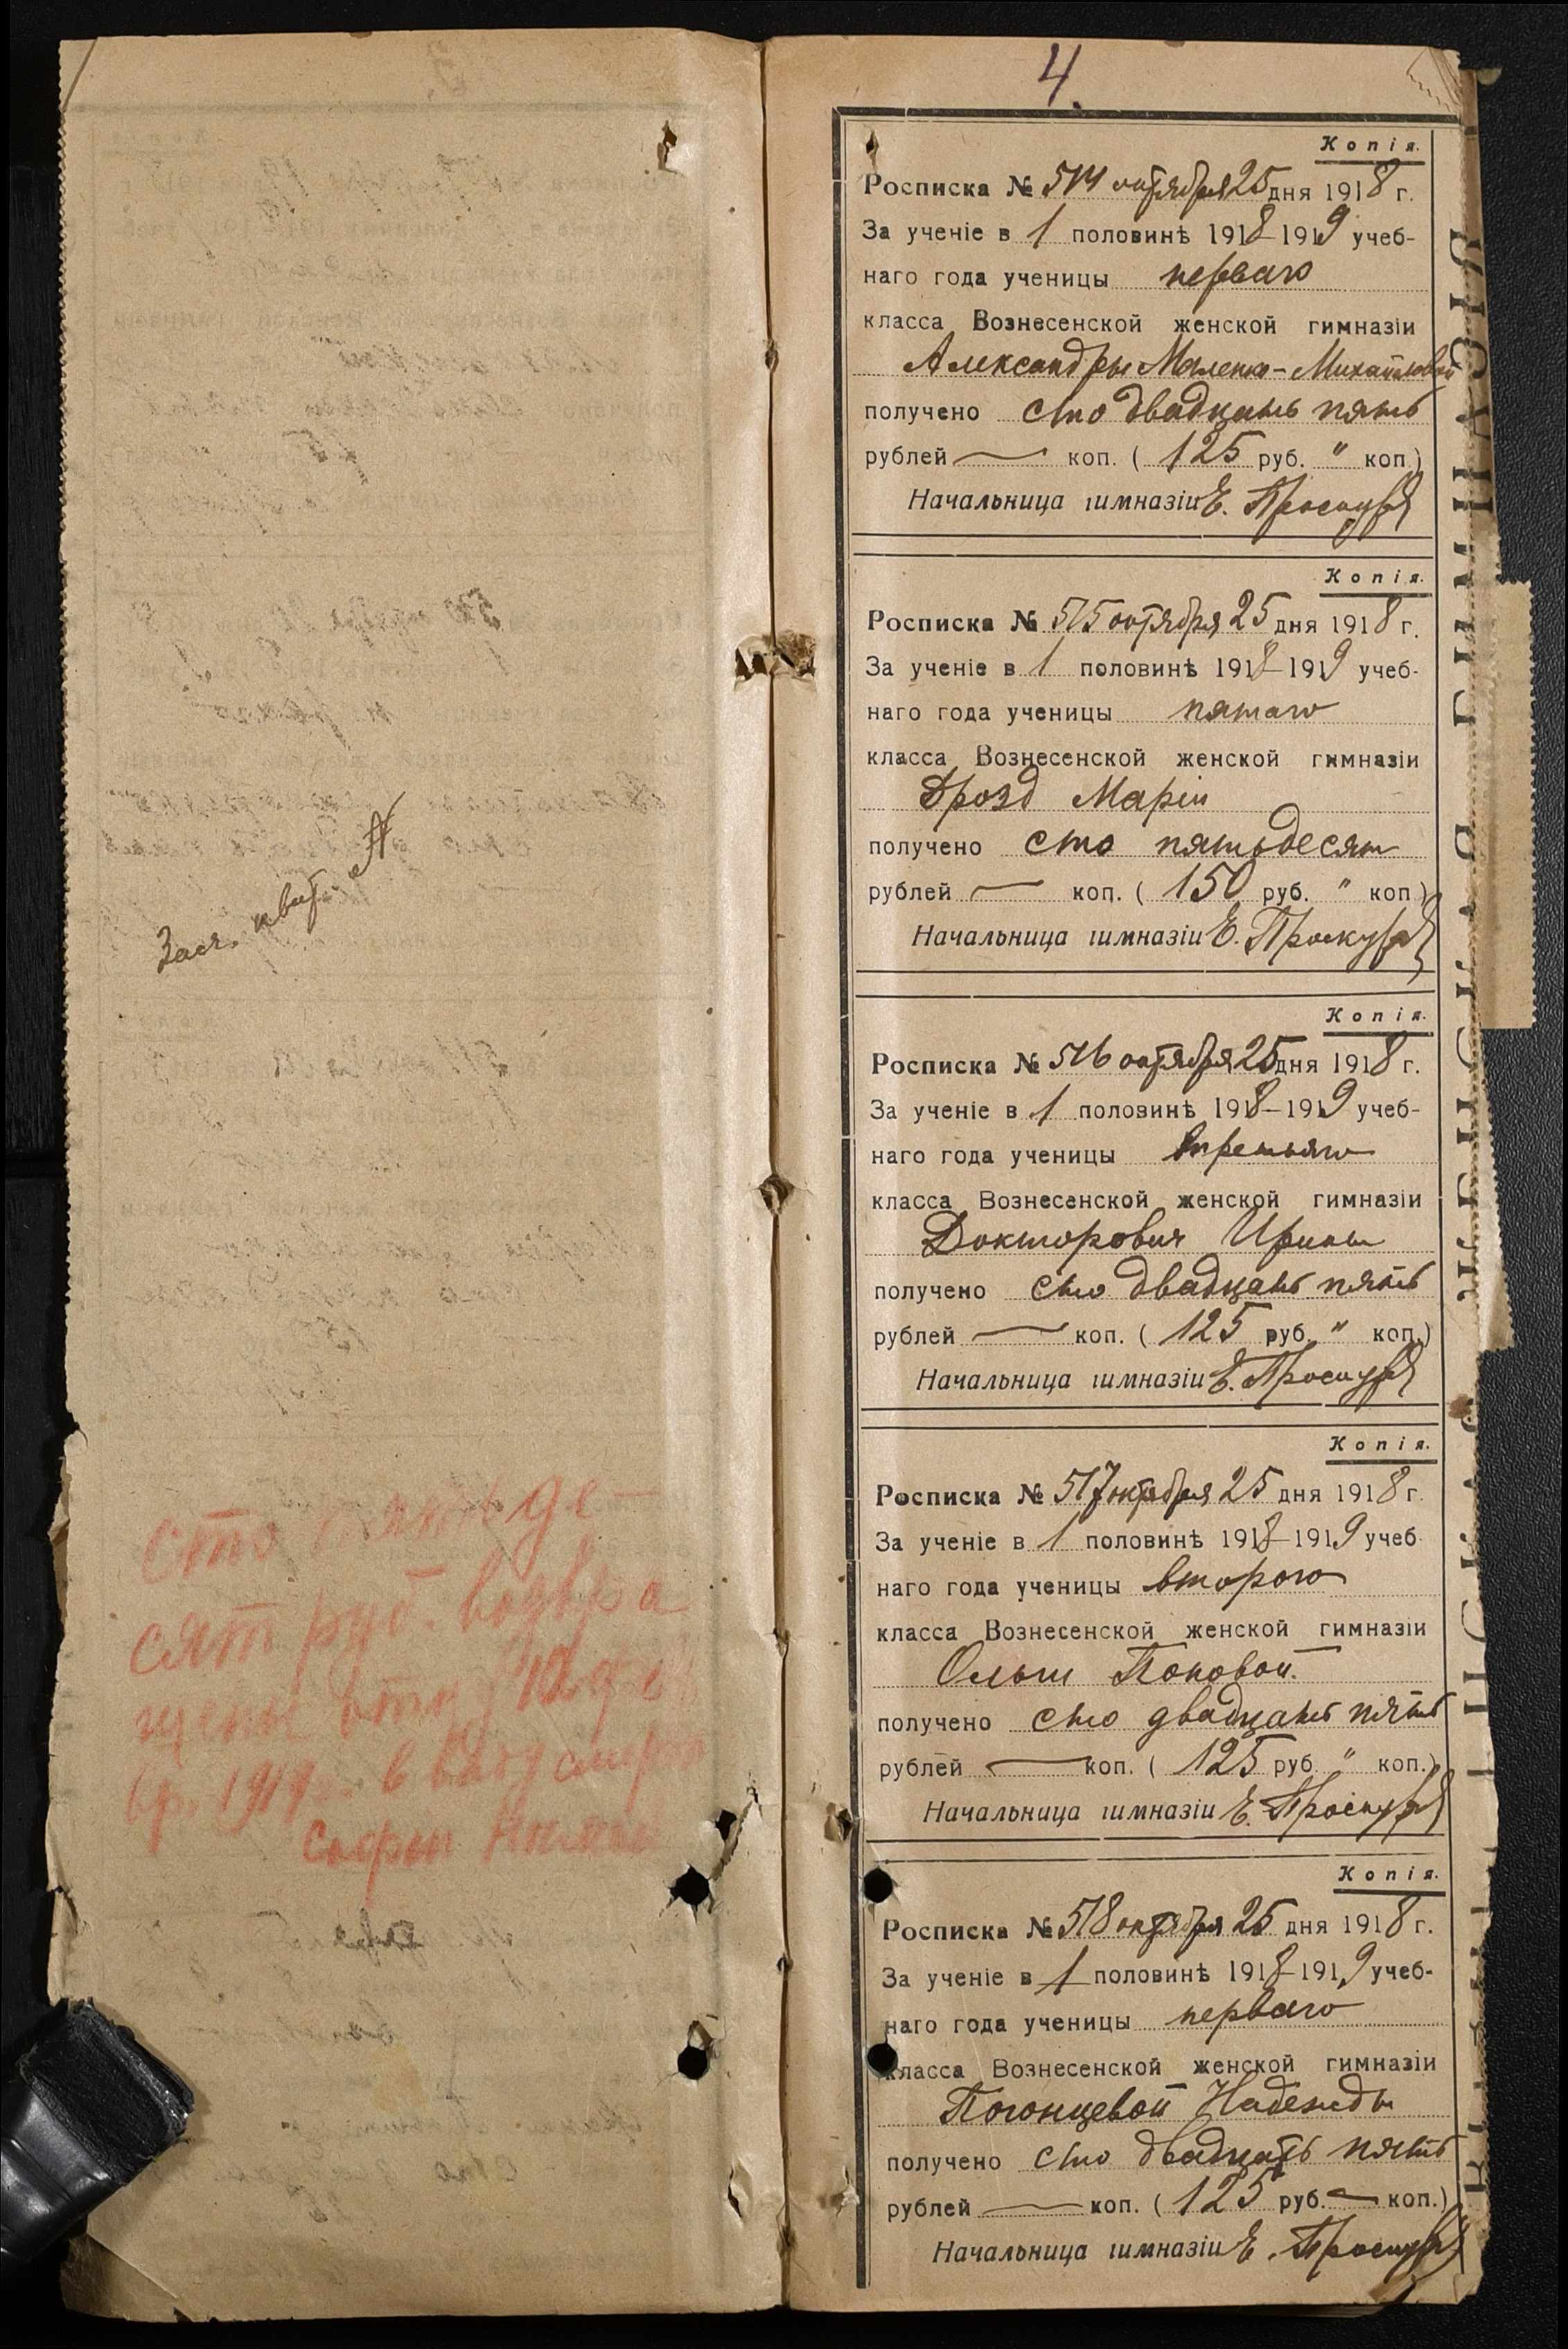 Засч. квит.
сто пятьде-
сят руб. возвра
щены отцу
вр. 1919 г. в виду смерти
4.
Копія.
Росписка № 514 октября 25 дня 1918 г.
За ученіе в 1 половинѣ 1918-1919 учеб-
наго года ученицы перваго
класса Вознесенской женской гимназіи
Александры Маленко-Михайловой
получено сто двадцать пять
рублей — коп. ( 125 руб. " коп.)
Начальница гимназіи Е. Проскура
Копія.
Росписка № 515 октября 25 дня 1918 г.
За ученіе в 1 половинѣ 1918-1919 учеб-
наго года ученицы пятаго
класса Вознесенской женской гимназіи
Дрозд Маріи
получено сто пятьдесят
рублей — коп. ( 150 руб. " коп.)
Начальница гимназіи Е. Проскура
Копія.
Росписка № 516 октября 25 дня 1918 г.
За ученіе в 1 половинѣ 1918-1919 учеб-
наго года ученицы третьяго
класса Вознесенской женской гимназіи
Докторович Ирины
получено сто двадцать пять
рублей — коп. ( 125 руб. " коп.)
Начальница гимназіи Е. Проскура
Копія.
Росписка № 517 октября 25 дня 1918 г.
За ученіе в 1 половинѣ 1918-1919 учеб
наго года ученицы второго
класса Вознесенской женской гимназіи
Ольги Поповой.
получено сто двадцать пять
рублей — коп. ( 125 руб. " коп.)
Начальница гимназіи Е. Проскура
Копія.
Росписка № 518 октября 25 дня 1918 г.
За ученіе в 1 половинѣ 1918-1919 учеб-
наго года ученицы перваго
класса Вознесенской женской гимназіи
Погонцевой Надежды
получено сто двадцать пять
рублей — коп. ( 125 руб. — коп.)
Начальница гимназіи Е. Проскура